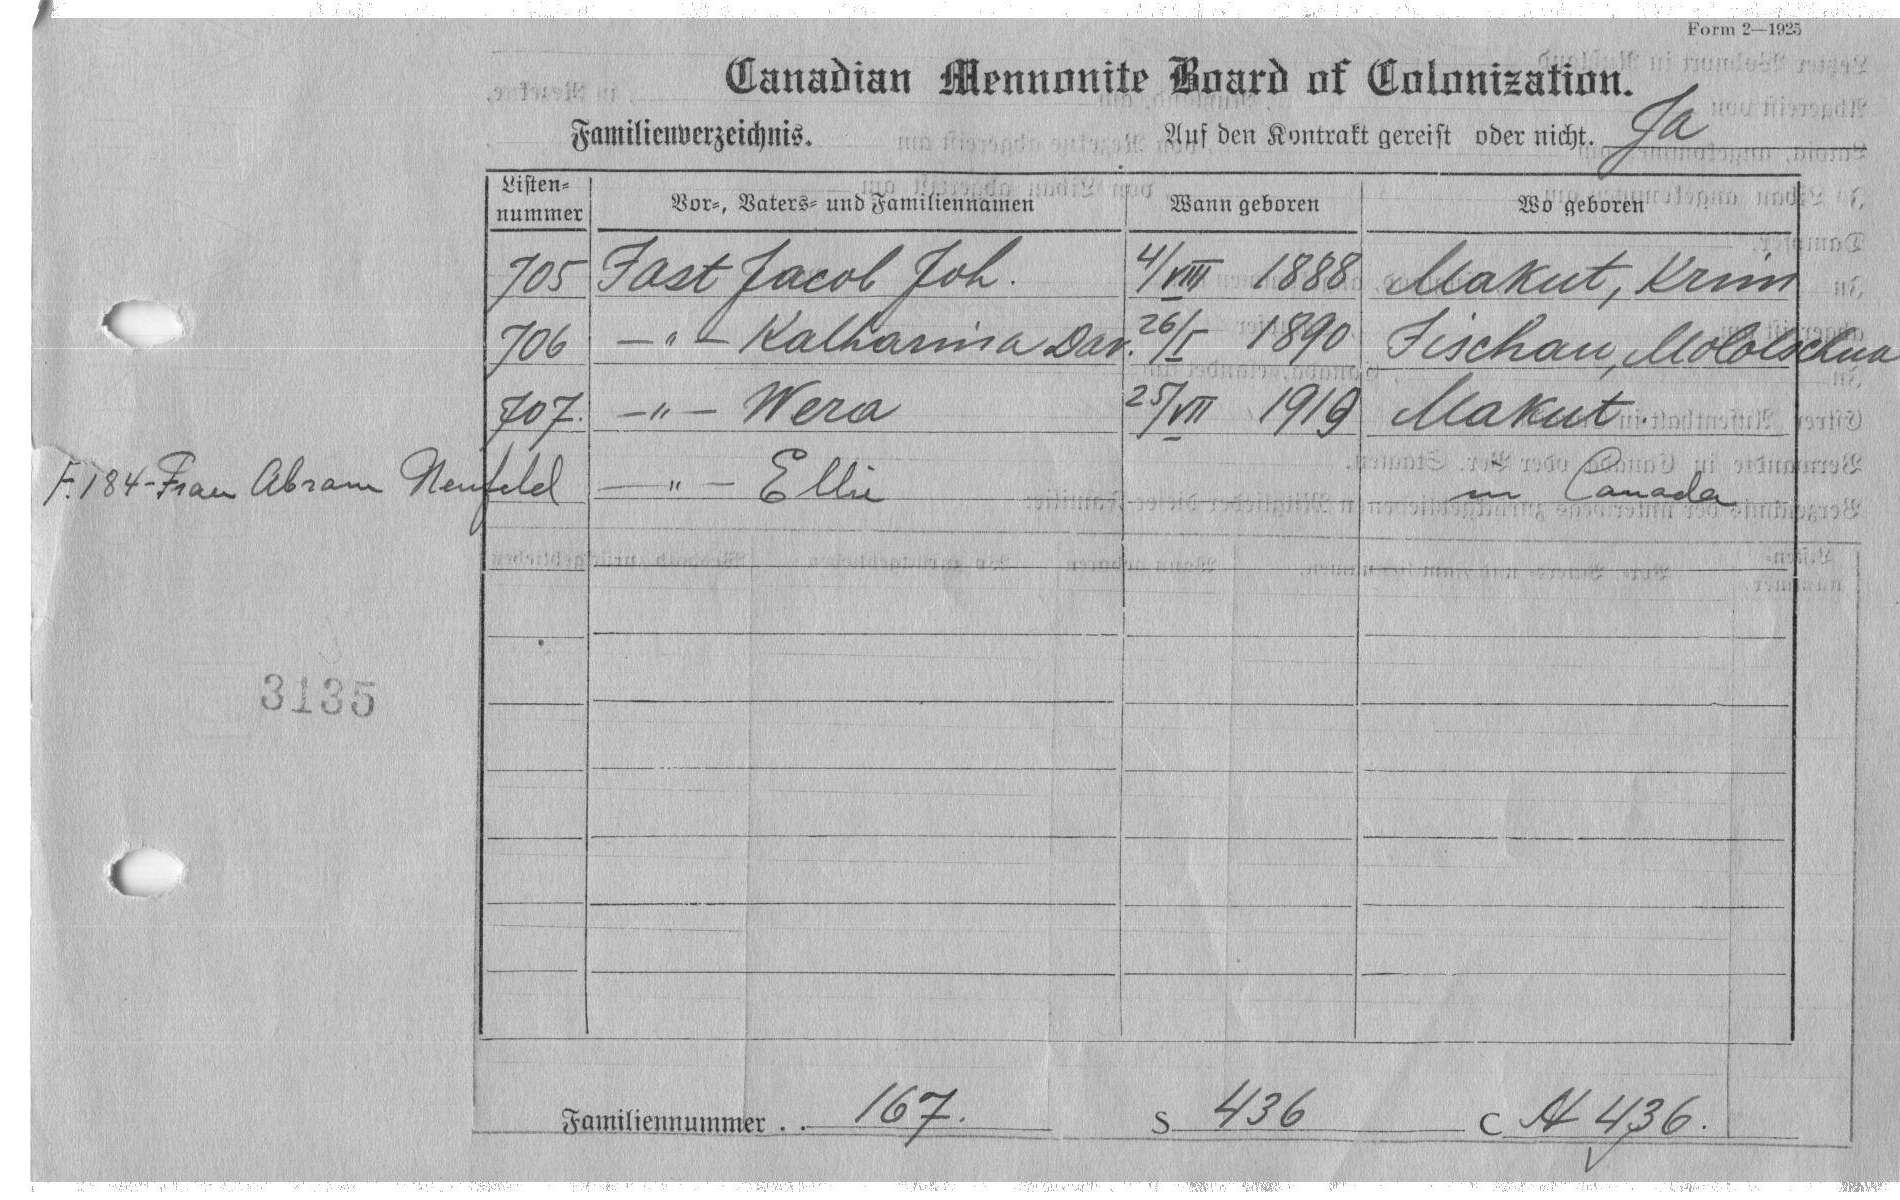 Form 2—1925
Canadian Mennonite Board of Colonization.
Familienverzeichnis. Auf den Kontrakt gereist oder nicht. Ja
Listen-nummer Vor-, Vaters- und Familiennamen Wann geboren Wo geboren
705 Fast Jacob Joh. 4/VIII 1888 Makut, Krim
706 —"— Katharina Dav. 26/I 1890 Fischau, Molotschna
707. —"— Wera 25/VII 1919 Makut.
F.184-Frau Abram Neufeld —"— Ellie in Canada
3135
Familiennummer . . 167. S 436 C 436.